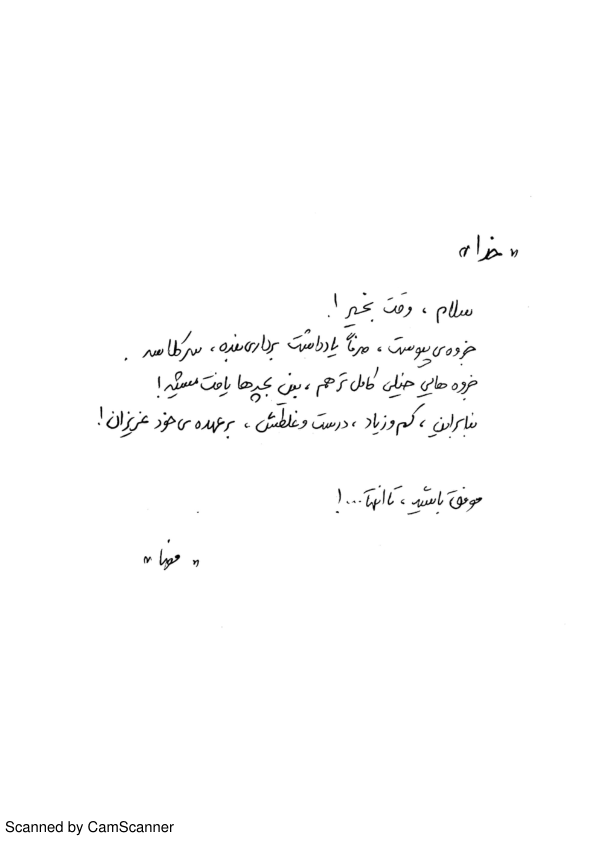 « خدا »
سلام ، وقت بخیر !
جزوه‌ی پیوست ، صرفاً یادداشت برداری بنده ، سر کلاسه .
جزوه هایی خیلی کامل تر هم ، بین بچه‌ها یافت میشه !
بنابراین ، کم و زیاد ، درست و غلطش ، بر عهده‌ی خود عزیزان !
موفق باشید ، تا انتها ... !
« »
Scanned by CamScanner